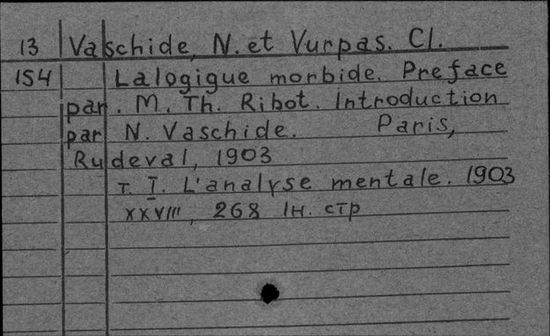 13 Vaschide, N. et Vurpas. Cl.
154 Lalogigue morbide. Preface
par. M. Th. Ribot. Introduction
par N. Vaschide. Paris,
Rudeval, 1903
T. I. L'analyse mentale. 1903
XXVIII, 268 1н. стр